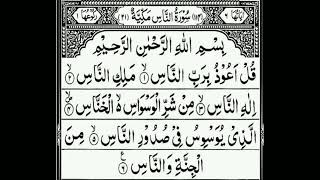 اٰيَاتُهَا ٦ (١١٤) سُوْرَةُ النَّاسِ مَكِّيَّةٌ (٢١) رُكُوْعُهَا ١
بِسْمِ اللّٰهِ الرَّحْمٰنِ الرَّحِيْمِ
قُلْ اَعُوْذُ بِرَبِّ النَّاسِ ۙ١ مَلِكِ النَّاسِ ۙ٢
اِلٰهِ النَّاسِ ۙ٣ مِنْ شَرِّ الْوَسْوَاسِ ۙ۬ الْخَنَّاسِ ۪ۙ٤
الَّذِيْ يُوَسْوِسُ فِيْ صُدُوْرِ النَّاسِ ۙ٥ مِنَ
الْجِنَّةِ وَالنَّاسِ ٦